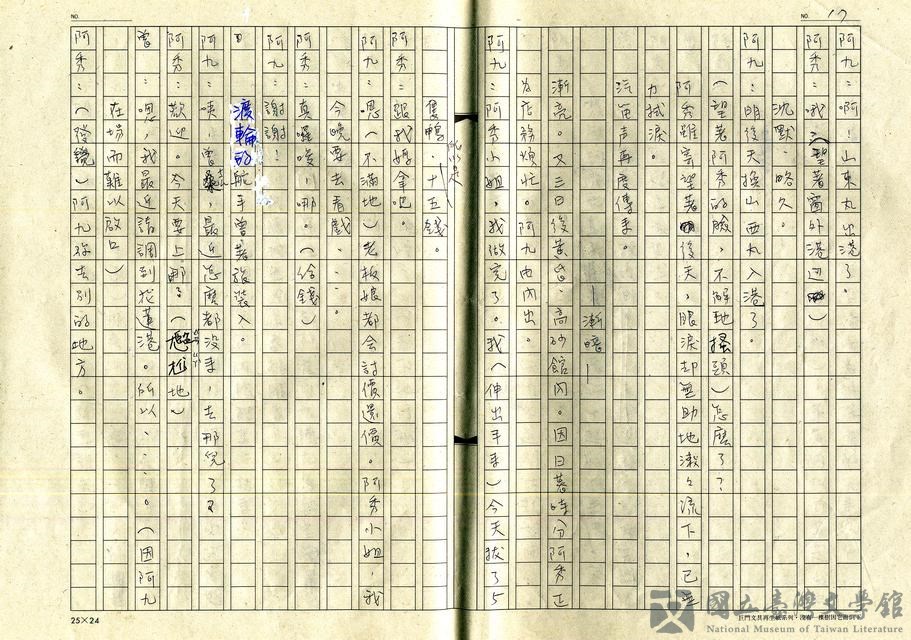 NO. 17
阿九：啊！山東丸出港了。
阿秀：哦！（望著窗外港边）
沉默，略久。
阿九：明後天換山西丸入港了。
（望著阿秀的臉，不解地搔頭）怎麼了？
阿秀雖旁望著後天，眼淚却無助地潄々流下，已無
力拭淚。
汽笛声再度傳来。
—漸暗—
漸亮。又三日後黄昏、高砂館内。因日暮時分阿秀正
為店務煩忙。阿九由内出。
阿九：阿秀小姐，我做完了。我（伸出手来）今天拔了5
隻鴨，十五錢。
阿秀：跟我媽拿吧。
阿九：嗯（不滿地）老板娘都会討價還價。阿秀小姐，我
今晚要去看戲……
阿秀：真囉唆，哪。（给錢）
阿九：謝謝！
渡輪的航手曾著張裝入。
阿九：咦，曾桑，最近怎麼都没来，去那兒了？
阿秀：歡迎。今天要上那了（尷尬地）
曾：嗯，我最近請調到花蓮港。所以……。（因阿九
在場而難以啟口）
阿秀：（發覺）阿九你去別的地方。
NO.
25×24
國立臺灣文學館
National Museum of Taiwan Literature